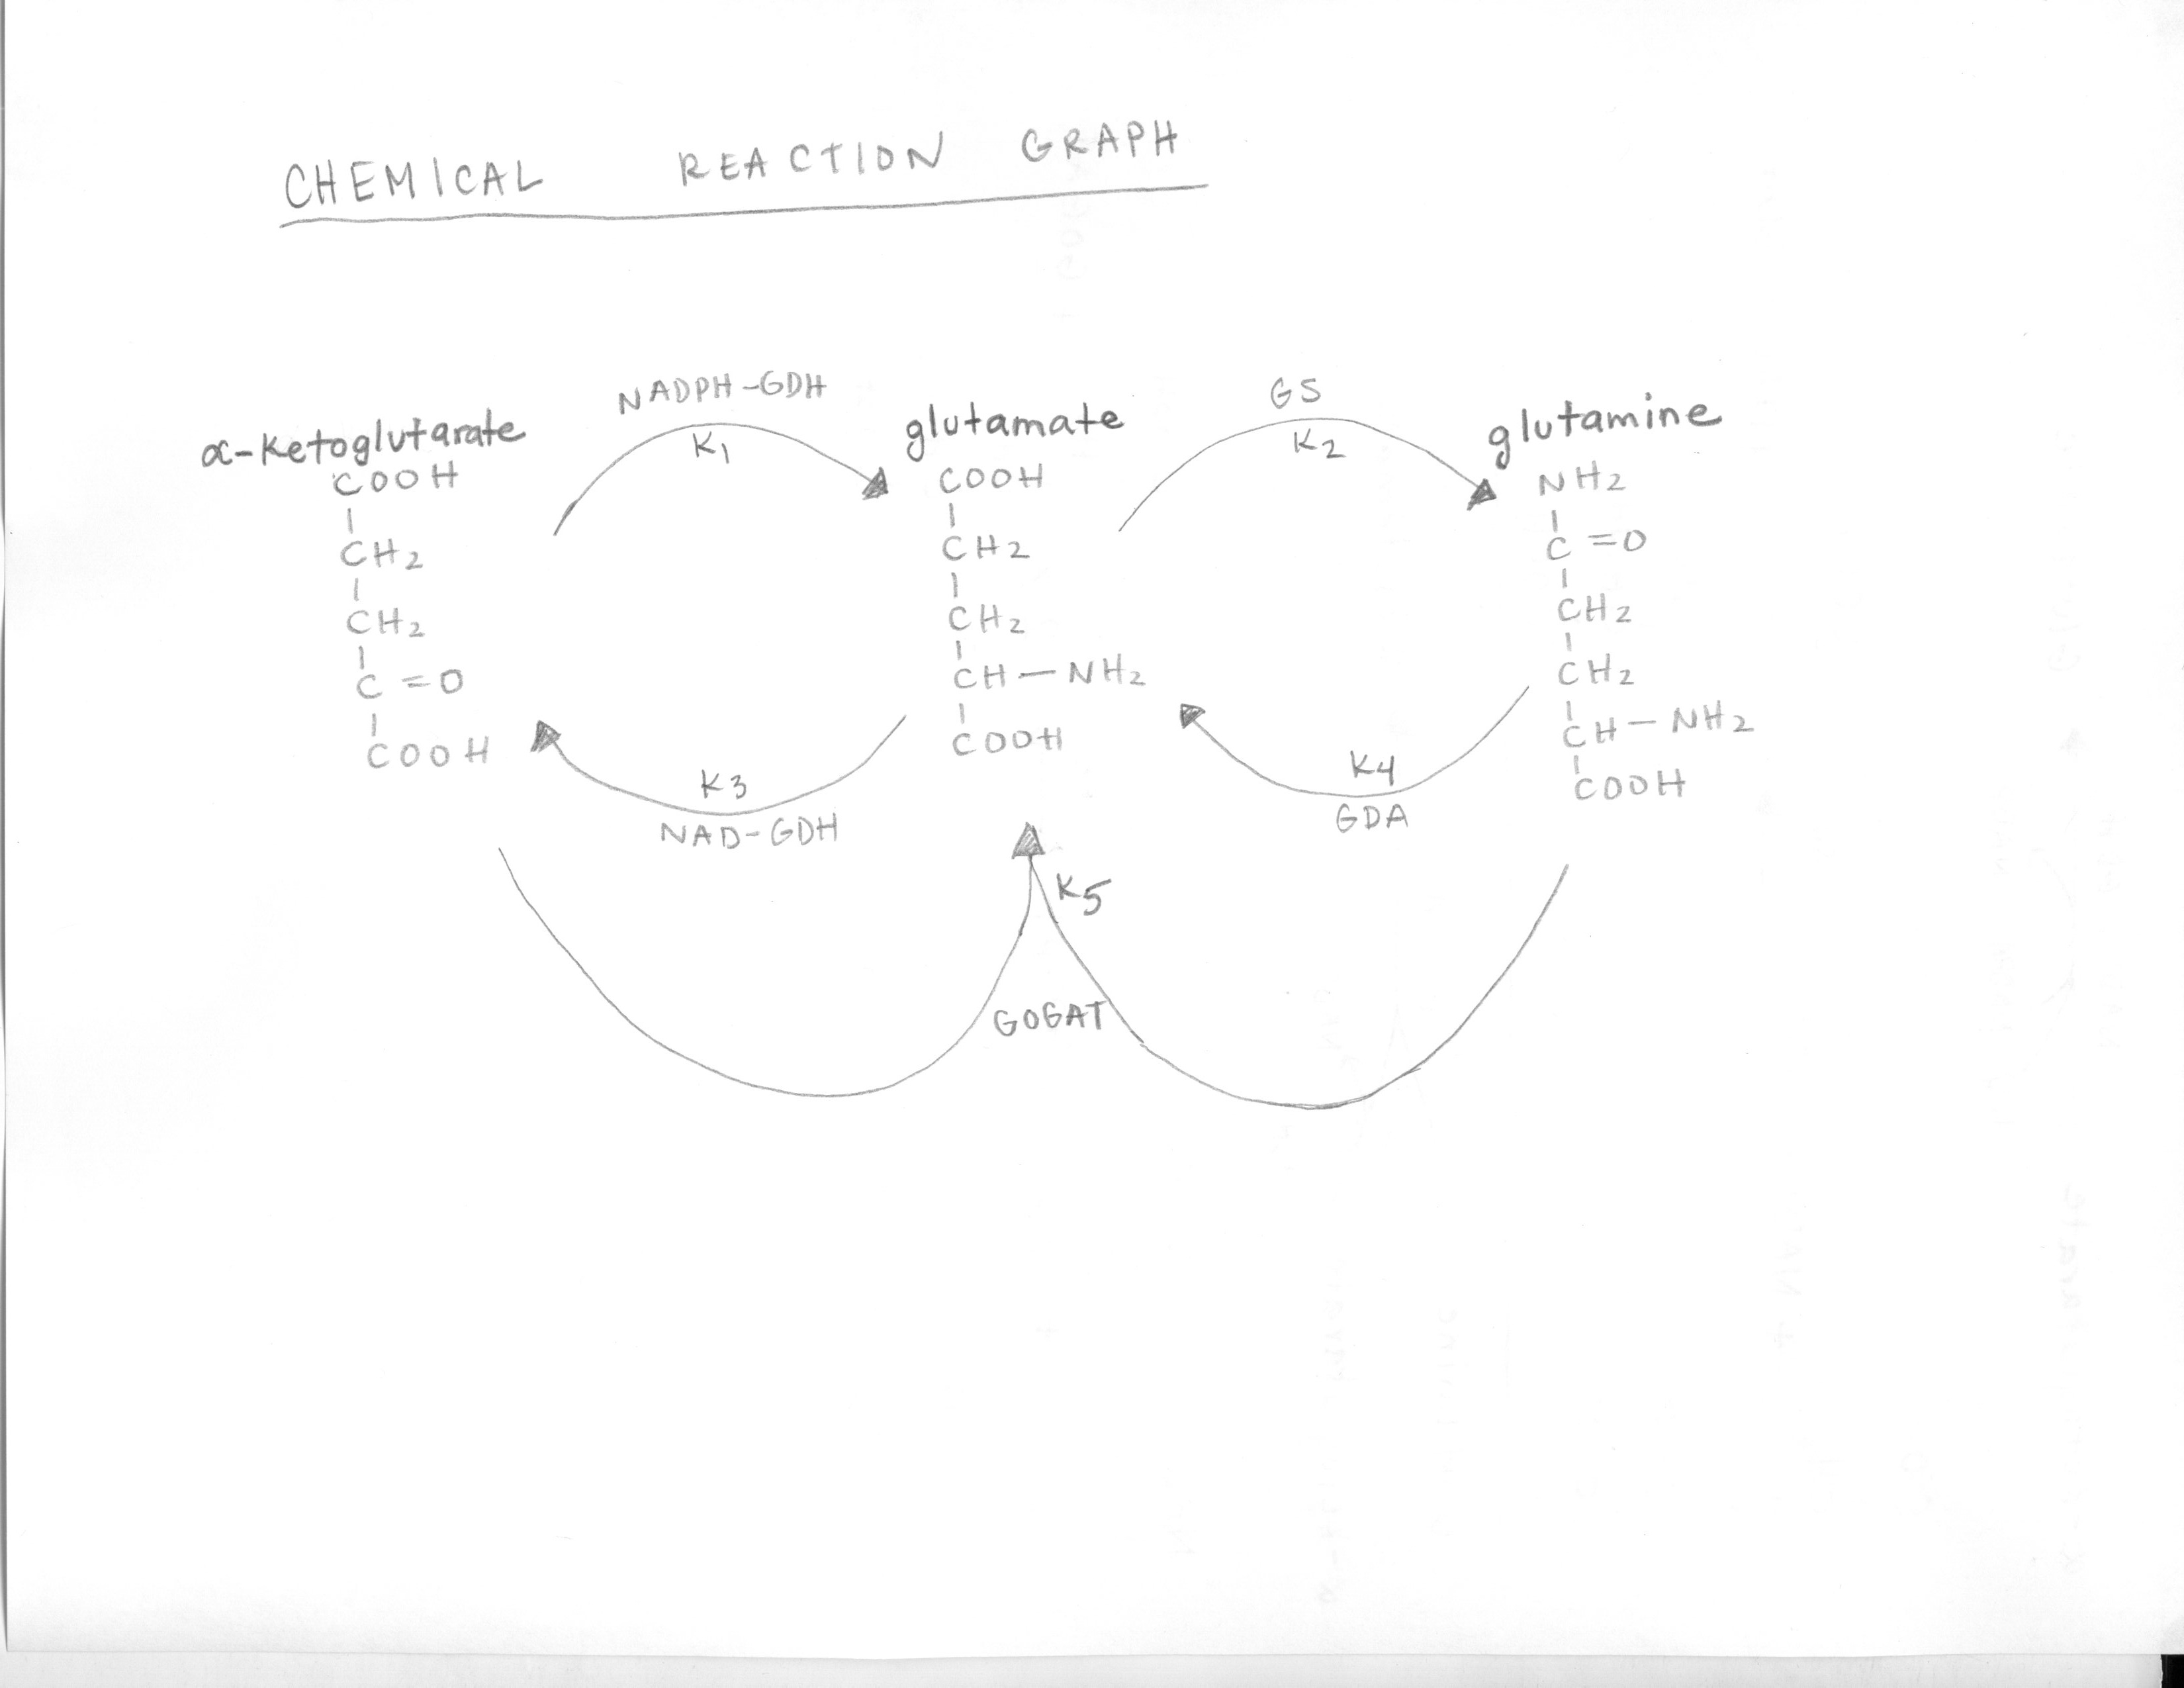 CHEMICAL REACTION GRAPH
NADPH-GDH
K1
GS
K2
α-ketoglutarate
COOH
|
CH2
|
CH2
|
C=O
|
COOH
glutamate
COOH
|
CH2
|
CH2
|
CH—NH2
|
COOH
glutamine
NH2
|
C=O
|
CH2
|
CH2
|
CH—NH2
|
COOH
K3
NAD-GDH
K4
GDA
K5
GOGAT